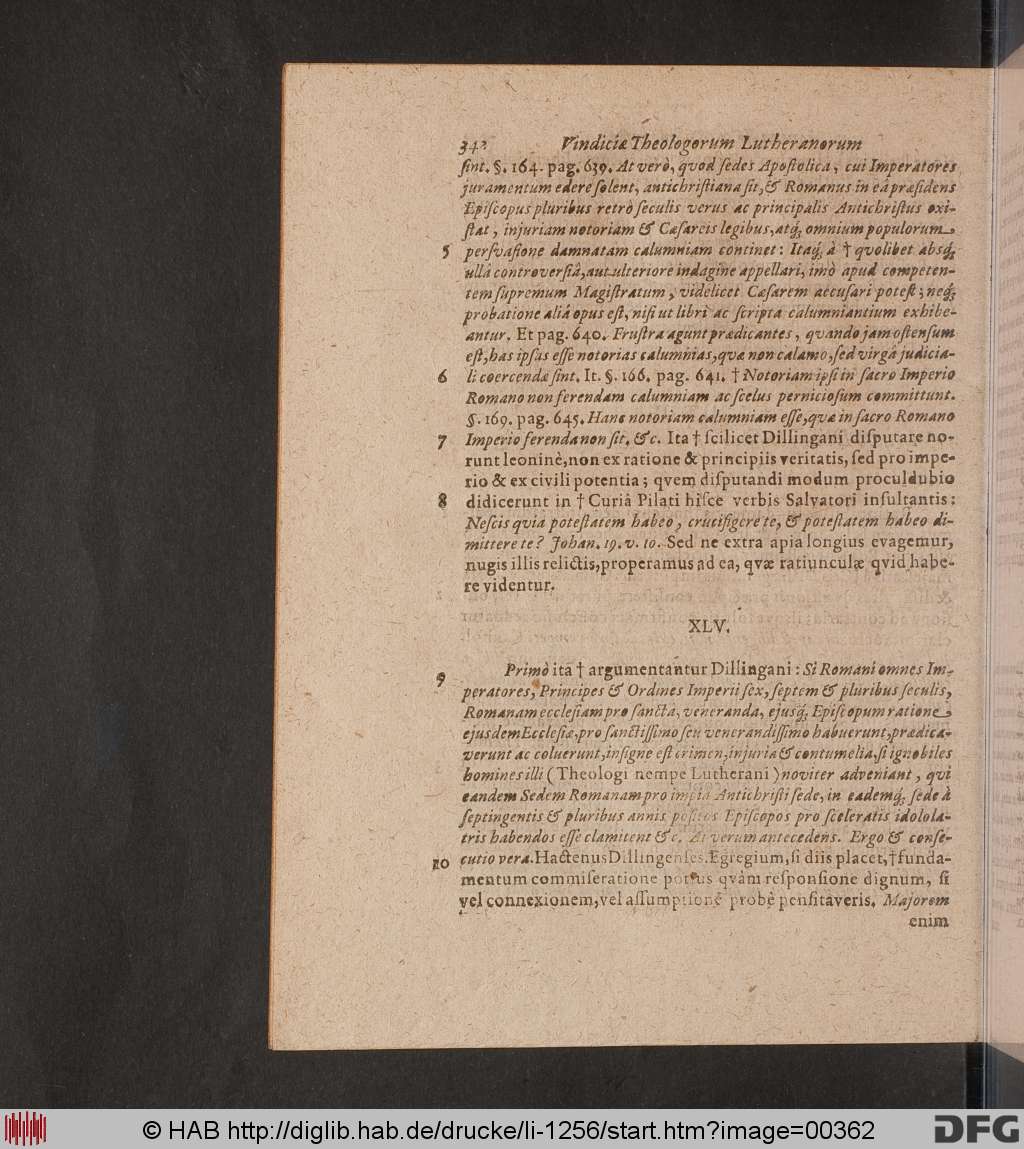 342 Vindiciæ Theologorum Lutheranorum
ſint. §. 164. pag. 639. At verò, quod ſedes Apoſtolica, cui Imperatores
juramentum edere ſolent, antichriſtiana ſit, & Romanus in ea præſidens
Epiſcopus pluribus retrò ſeculis verus ac principalis Antichriſtus exi-
ſtat, injuriam notoriam & Cæſareis legibus, atq́; omnium populorum
5 perſvaſione damnatam calumniam continet: Itaq́; à † quolibet absq́;
ullâ controverſiâ, aut ulteriore indagine appellari, imò apud competen-
tem ſupremum Magiſtratum, videlicet Cæſarem accuſari poteſt; neq́;
probatione aliâ opus eſt, niſi ut libri ac ſcripta calumniantium exhibe-
antur. Et pag. 640. Fruſtra agunt prædicantes, quando jam oſtenſum
eſt, has ipſas eſſe notorias calumnias, quæ non calamo, ſed virgâ judicia-
6 li coercendæ ſint. It. §. 166. pag. 641. † Notoriam ipſi in ſacro Imperio
Romano non ferendam calumniam ac ſcelus pernicioſum committunt.
§. 169. pag. 645. Hanc notoriam calumniam eſſe, quæ in ſacro Romano
7 Imperio ferenda non ſit. &c. Ita † ſcilicet Dillingani diſputare no-
runt leoninè, non ex ratione & principiis veritatis, ſed pro impe-
rio & ex civili potentia; qvem diſputandi modum proculdubio
8 didicerunt in † Curiâ Pilati hiſce verbis Salvatori inſultantis:
Neſcis quia poteſtatem habeo, crucifigere te, & poteſtatem habeo di-
mittere te? Johan. 19. v. 10. Sed ne extra apia longius evagemur,
nugis illis relictis, properamus ad ea, qvæ ratiunculæ qvid habe-
re videntur.
XLV.
9 Primò ita † argumentantur Dillingani: Si Romani omnes Im-
peratores, Principes & Ordines Imperii ſex, ſeptem & pluribus ſeculis,
Romanam eccleſiam pro ſancta, veneranda, ejusq́; Epiſcopum ratione
ejusdem Eccleſiæ, pro ſanctiſſimo ſeu venerandiſſimo habuerunt, prædica-
verunt ac coluerunt, inſigne eſt crimen, injuria & contumelia, ſi ignobiles
homines illi (Theologi nempe Lutherani) noviter adveniant, qvi
eandem Sedem Romanam pro impia Antichriſti ſede, in eademq́; ſede à
ſeptingentis & pluribus annis poſitos Epiſcopos pro ſceleratis idolola-
tris habendos eſſe clamitent &c. At verum antecedens. Ergo & conſe-
10 cutio vera. Hactenus Dillingenſes. Egregium, ſi diis placet, † funda-
mentum commiſeratione potius qvàm reſponſione dignum, ſi
vel connexionem, vel aſſumptionẽ probè penſitaveris. Majorem
enim
© HAB http://diglib.hab.de/drucke/li-1256/start.htm?image=00362
DFG